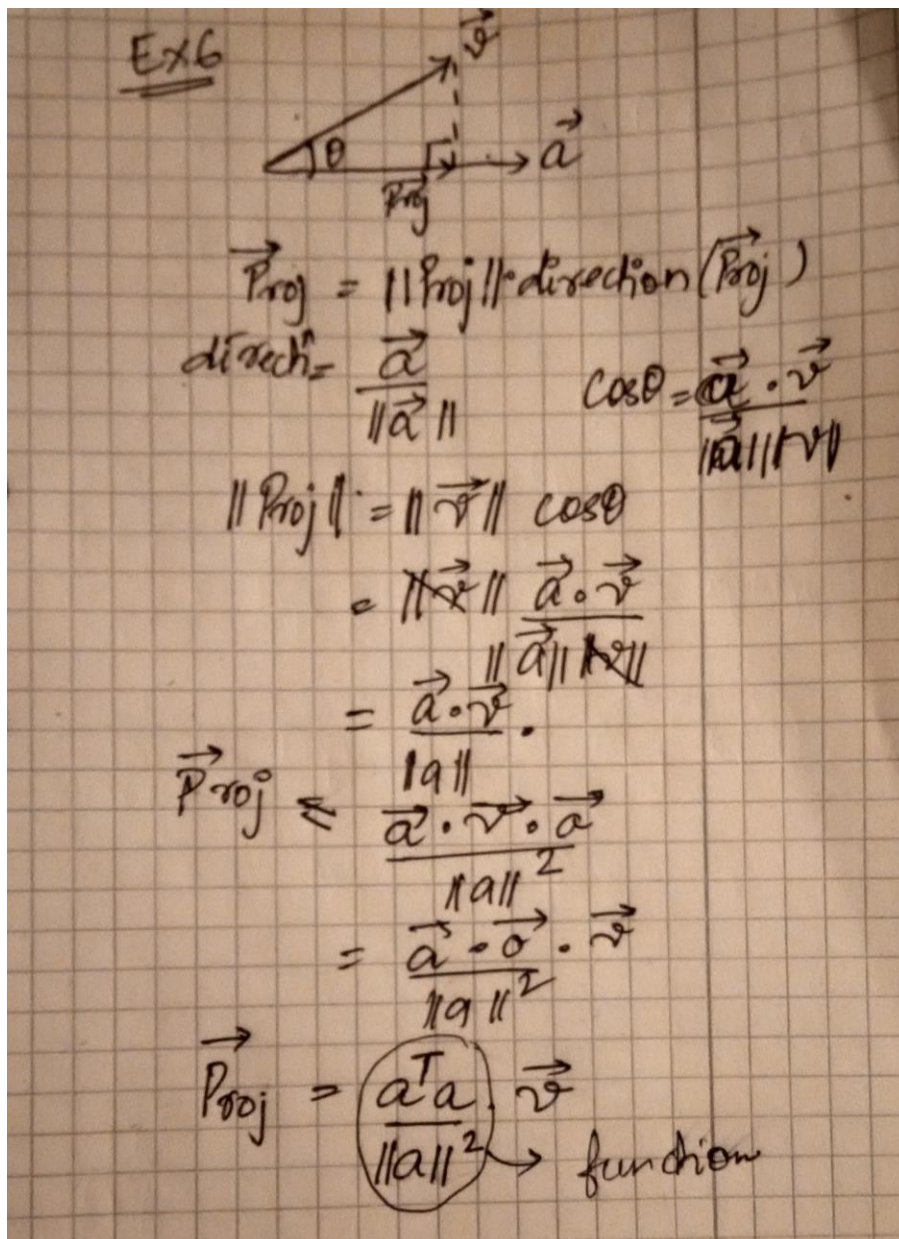 Ex6
v⃗
θ
a⃗
Proj
Proj⃗ = ||Proj||·direction(Proj⃗)
directⁿ = a⃗ / ||a⃗||
cosθ = a⃗ · v⃗ / ||a⃗|| ||v||
||Proj|| = ||v⃗|| cosθ
= ||v⃗|| a⃗ · v⃗ / ||a⃗|| ||v||
= a⃗ · v⃗ / ||a|| .
Proj⃗ = a⃗ · v⃗ · a⃗ / ||a||²
= a⃗ · a⃗ / ||a||² · v⃗
Proj⃗ = aᵀa / ||a||² . v⃗
→ function